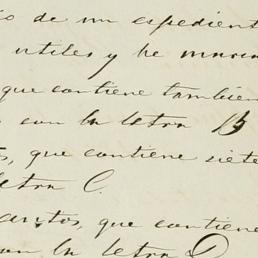 io de un espediente
utiles y he marca
que contiene tambien
s con la letra B
os, que contiene siete
letra C.
cuantos, que contiene
con la letra D